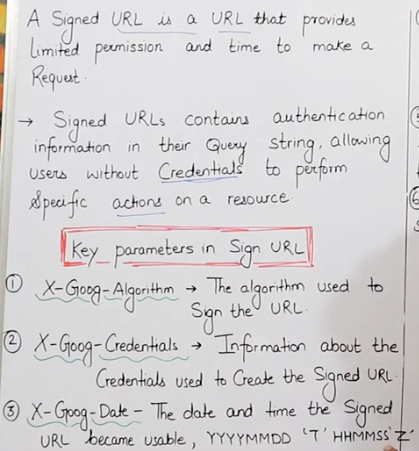 A Signed URL is a URL that provides
limited permission and time to make a
Request.
→ Signed URLs contains authentication
information in their Query string, allowing
users without Credentials to perform
Specific actions on a resource
Key parameters in Sign URL
① X-Goog-Algorithm → The algorithm used to
Sign the URL.
② X-Goog-Credentials → Information about the
Credentials used to Create the Signed URL.
③ X-Goog-Date - The date and time the Signed
URL became usable, YYYYMMDD 'T' HHMMSS'Z'